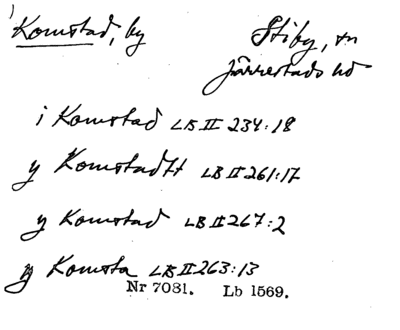 Komstad, by Stiby, sn
Järrestads hd
i Komstad LB II 234:18
y Komstadtt LB II 261:17
y Komstad LB II 267:2
y Komsta LB II 263:13
Nr 7081. Lb 1569.